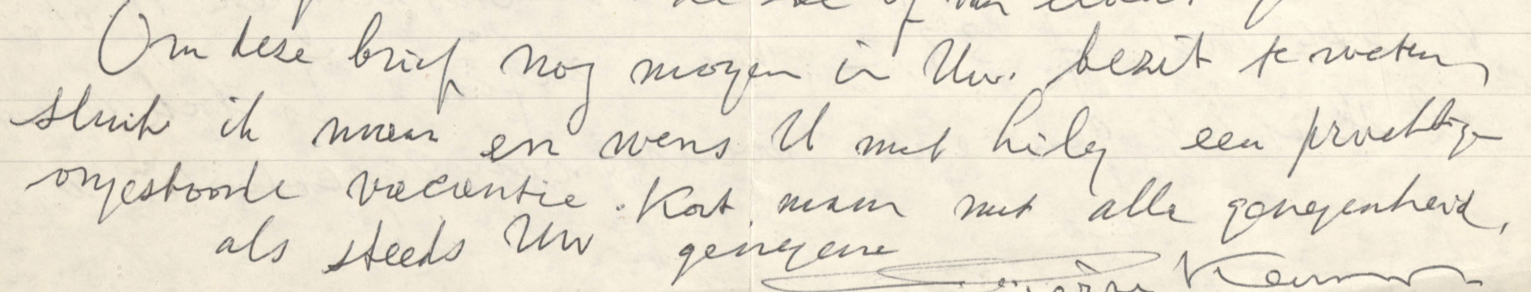 Om deze brief nog mogen in Uw. bezit te weten,
sluit ik maar en wens U met Lily een prachtige
ongestoorde vacantie. Kort maar met alle genegenheid,
als steeds Uw genegene